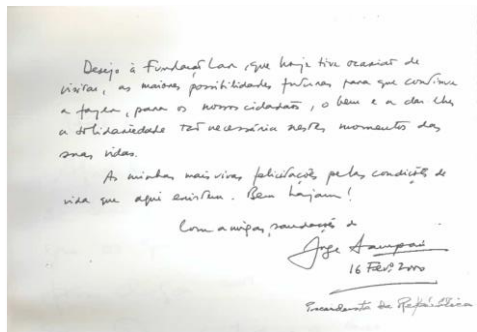 Desejo à Fundação Lar, que hoje tive ocasião de
visitar, as maiores possibilidades futuras para que continue
a fazer, para os nossos cidadãos, o bem e a dar lhes
a solidariedade tão necessária nestes momentos das
suas vidas.
As minhas mais vivas felicitações pelas condições de
vida que aqui existem. Bem hajam!
Com amigas saudações de
Jorge Sampaio
16 Fev. 2000
Presidente da República